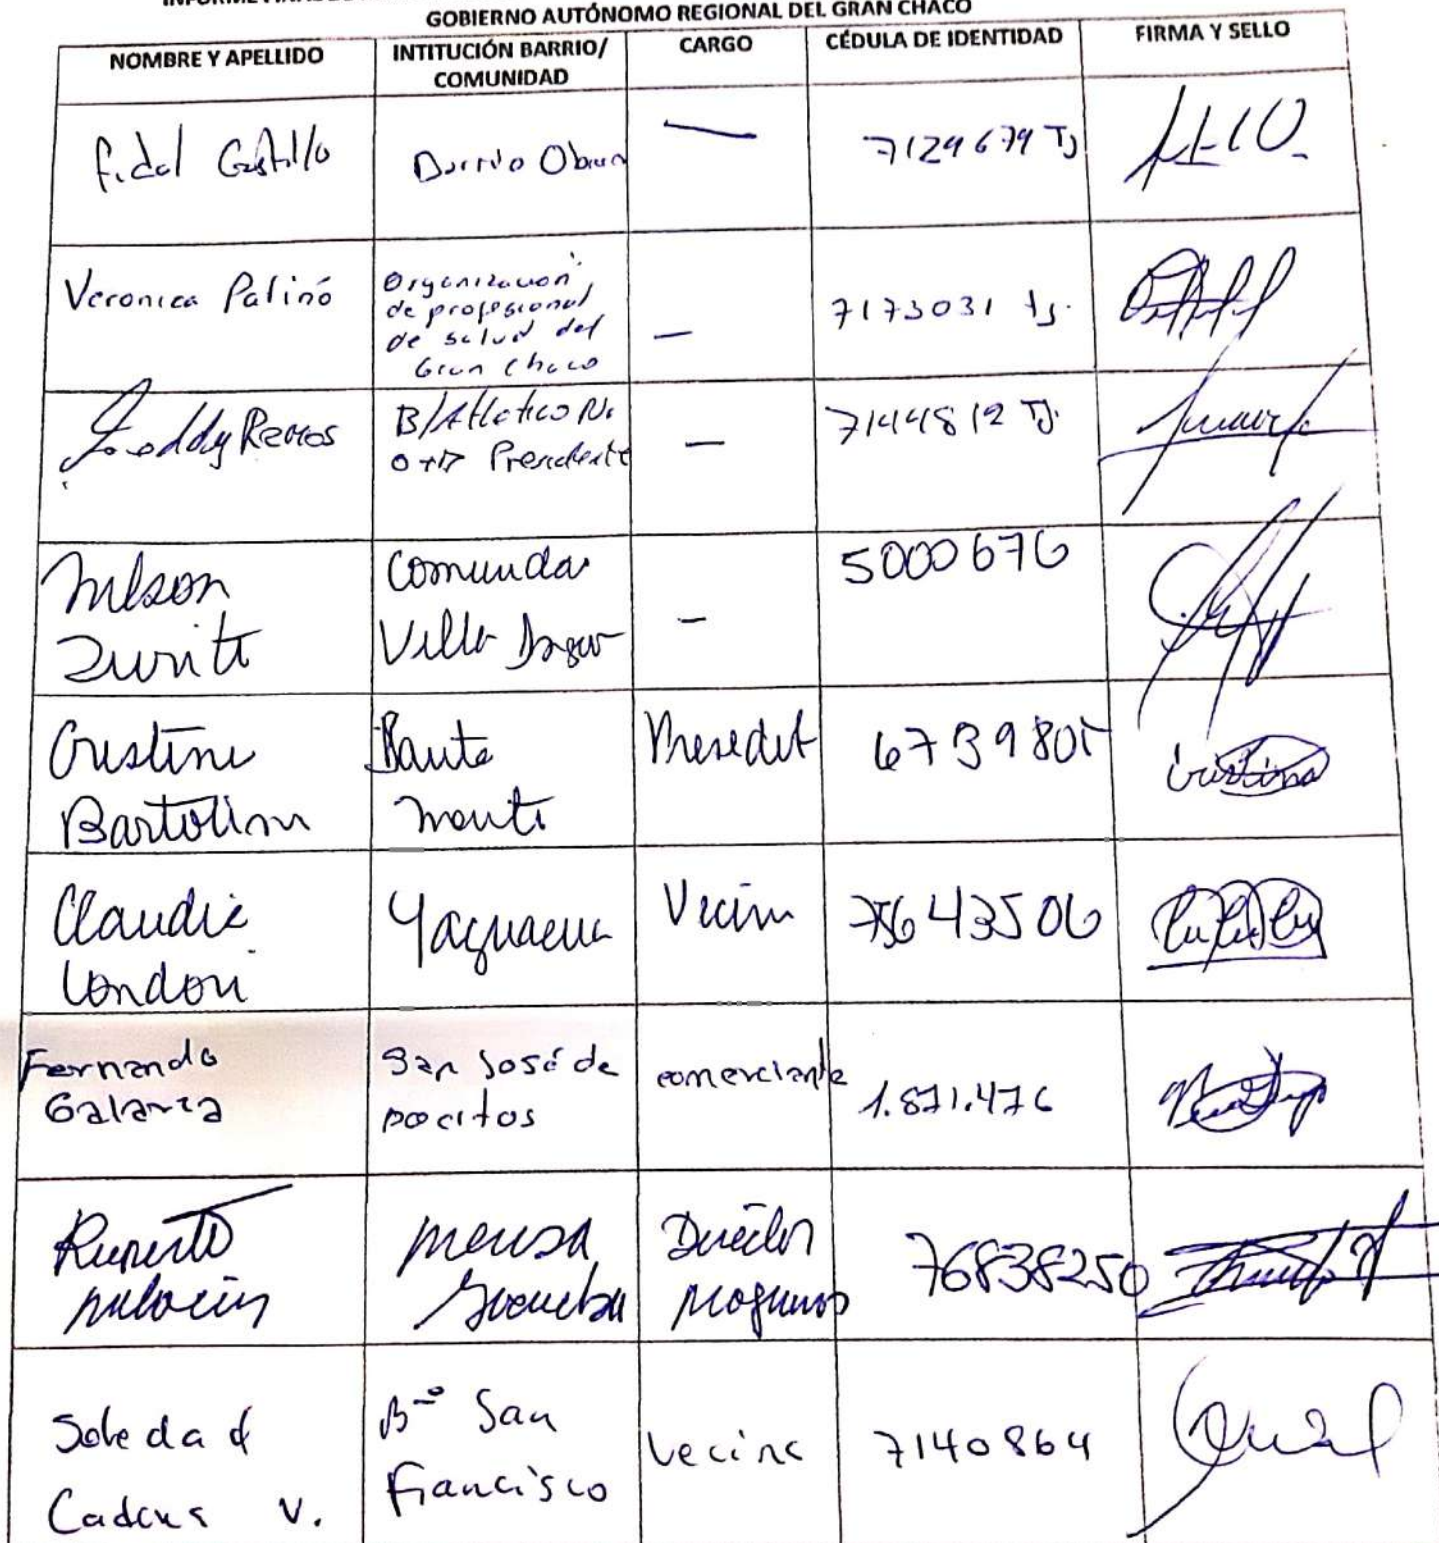 GOBIERNO AUTÓNOMO REGIONAL DEL GRAN CHACO
NOMBRE Y APELLIDO
INTITUCIÓN BARRIO/
COMUNIDAD
CARGO
CÉDULA DE IDENTIDAD
FIRMA Y SELLO
Fidel Castillo
Barrio Obrero
—
7129679 Tj
Veronica Patiño
Organizacion
de profesional
de salud del
Gran Chaco
—
7173031 tj.
Freddy Remos
B/Atletico No
OTB Presidente
—
7144812 TJ.
Nelson
Zurita
Comunidad
Villa
—
5000676
Cristina
Bartolina
monte
6739805
cristina
Claudia
London
Yaguacua
Vecina
43506
Fernando
Galarza
San José de
pocitos
comerciante
1.871.476
Ruperto
prensa
Director
76838250
Soledad
Cadena V.
B-º San
Francisco
vecina
7140864